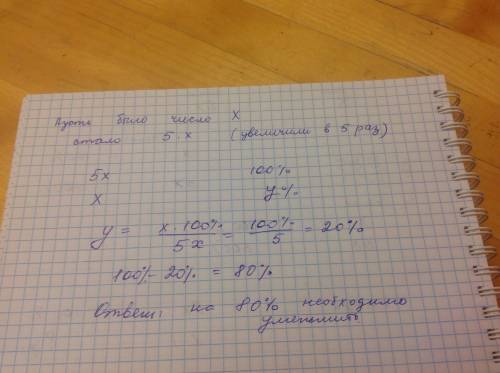 Пусть было число x
стало 5·x (увеличили в 5 раз)
5x 100%
x y%
y = x·100% / 5x = 100% / 5 = 20%
100% - 20% = 80%
Ответ: на 80% необходимо
уменьшить